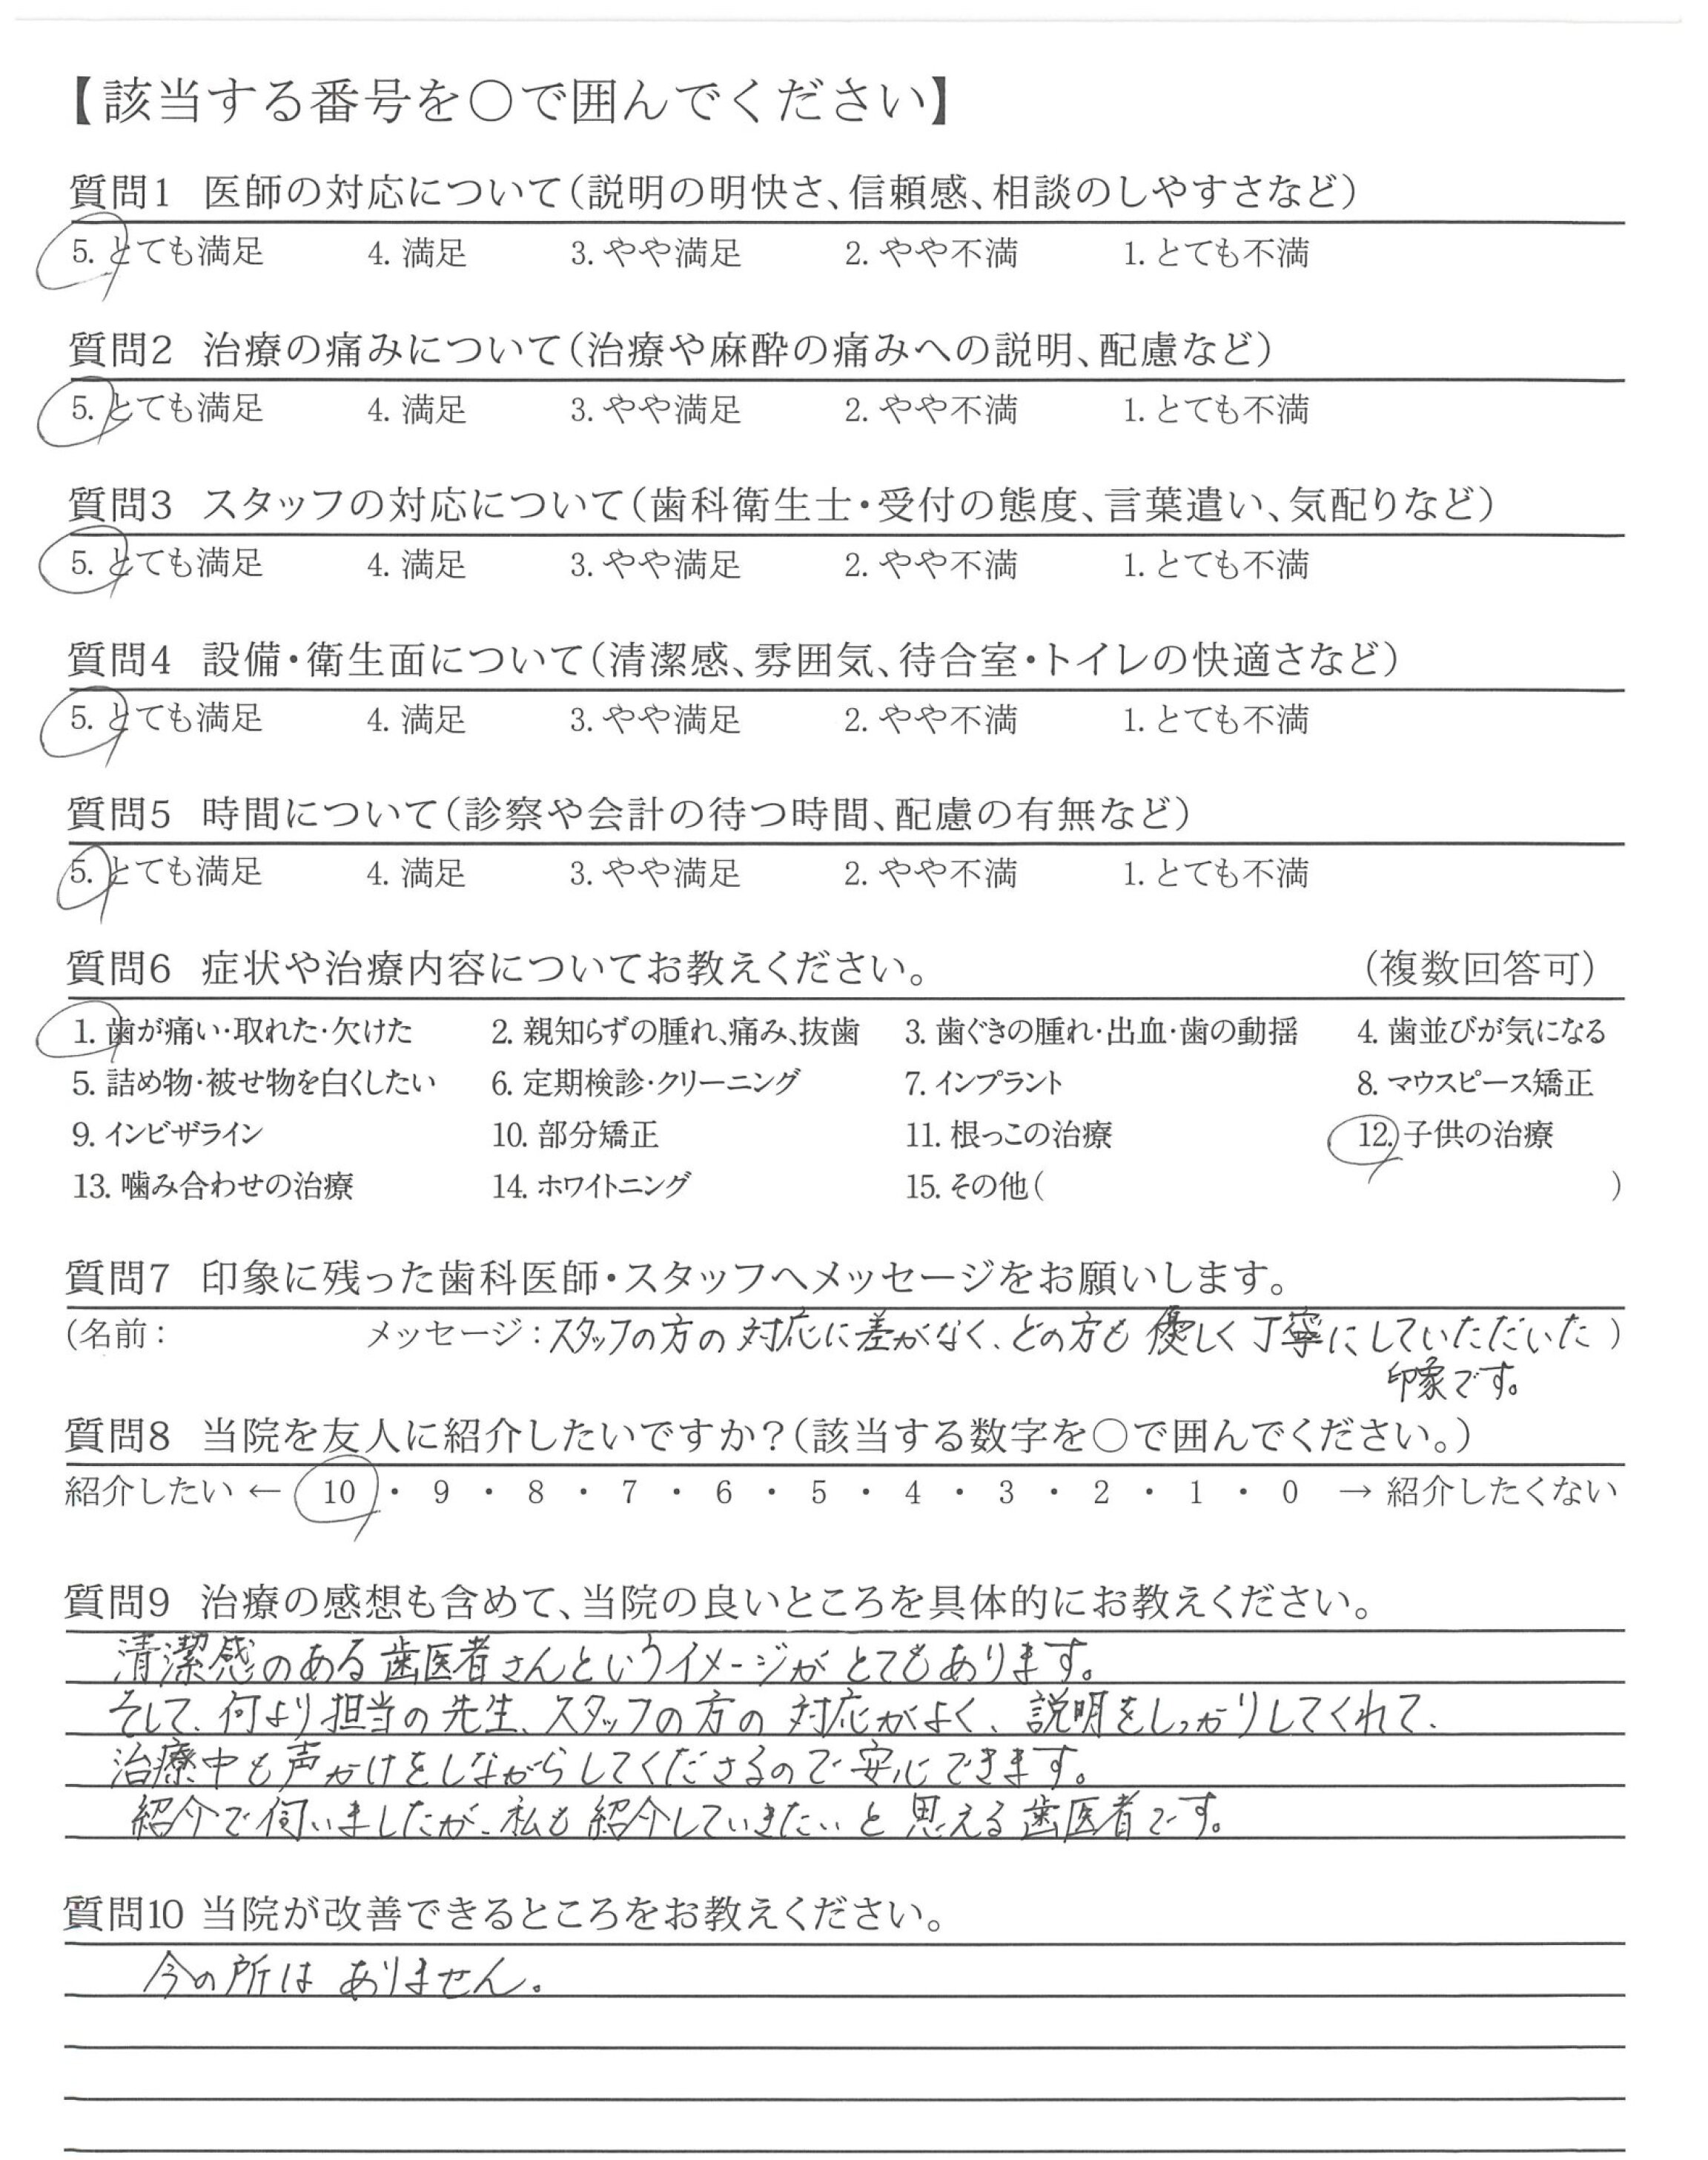 【該当する番号を〇で囲んでください】
質問1 医師の対応について(説明の明快さ、信頼感、相談のしやすさなど)
5. とても満足 4. 満足 3. やや満足 2. やや不満 1. とても不満
質問2 治療の痛みについて(治療や麻酔の痛みへの説明、配慮など)
5. とても満足 4. 満足 3. やや満足 2. やや不満 1. とても不満
質問3 スタッフの対応について(歯科衛生士・受付の態度、言葉遣い、気配りなど)
5. とても満足 4. 満足 3. やや満足 2. やや不満 1. とても不満
質問4 設備・衛生面について(清潔感、雰囲気、待合室・トイレの快適さなど)
5. とても満足 4. 満足 3. やや満足 2. やや不満 1. とても不満
質問5 時間について(診察や会計の待つ時間、配慮の有無など)
5. とても満足 4. 満足 3. やや満足 2. やや不満 1. とても不満
質問6 症状や治療内容についてお教えください。 (複数回答可)
1. 歯が痛い・取れた・欠けた 2. 親知らずの腫れ、痛み、抜歯 3. 歯ぐきの腫れ・出血・歯の動揺 4. 歯並びが気になる
5. 詰め物・被せ物を白くしたい 6. 定期検診・クリーニング 7. インプラント 8. マウスピース矯正
9. インビザライン 10. 部分矯正 11. 根っこの治療 12. 子供の治療
13. 噛み合わせの治療 14. ホワイトニング 15. その他( )
質問7 印象に残った歯科医師・スタッフへメッセージをお願いします。
(名前: メッセージ:スタッフの方の対応に差がなく、どの方も優しく丁寧にしていただいた )
印象です。
質問8 当院を友人に紹介したいですか?(該当する数字を〇で囲んでください。)
紹介したい ← 10 ・ 9 ・ 8 ・ 7 ・ 6 ・ 5 ・ 4 ・ 3 ・ 2 ・ 1 ・ 0 → 紹介したくない
質問9 治療の感想も含めて、当院の良いところを具体的にお教えください。
清潔感のある歯医者さんというイメージがとてもあります。
そして、何より担当の先生、スタッフの方の対応がよく、説明をしっかりしてくれて、
治療中も声かけをしながらしてくださるので安心できます。
紹介で伺いましたが、私も紹介していきたいと思える歯医者です。
質問10 当院が改善できるところをお教えください。
今の所はありません。